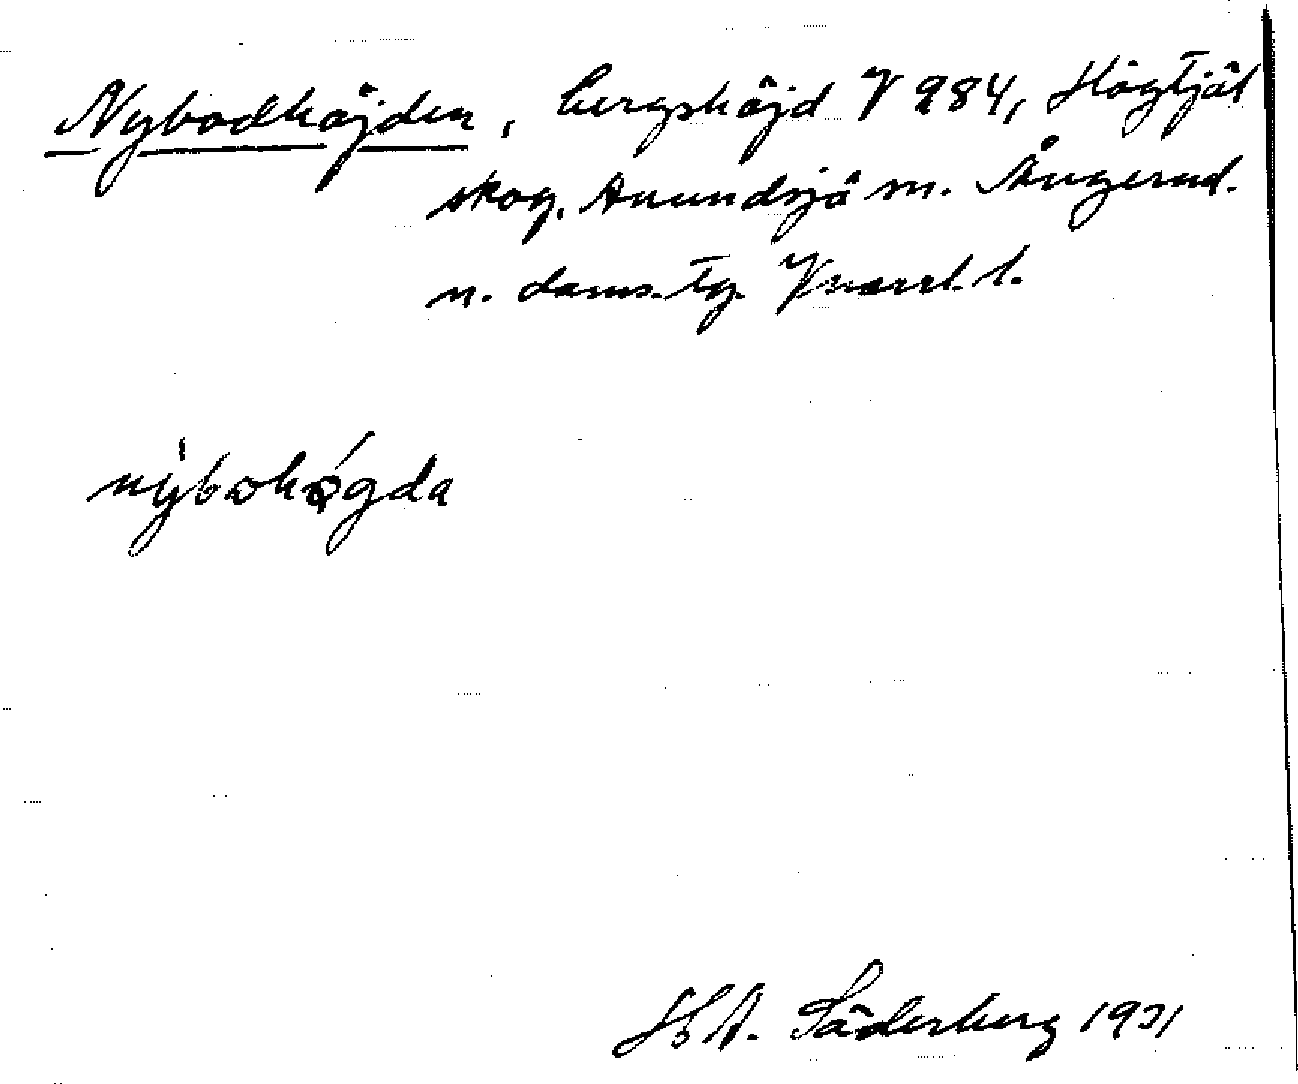 Nybodhöjden, bergshöjd V 984, Högtjäl
skog, Anundsjö sn. Ångerml.
n. doms. tg. Vnorrl. l.
nýbohǿgda
H A. Söderberg 1931